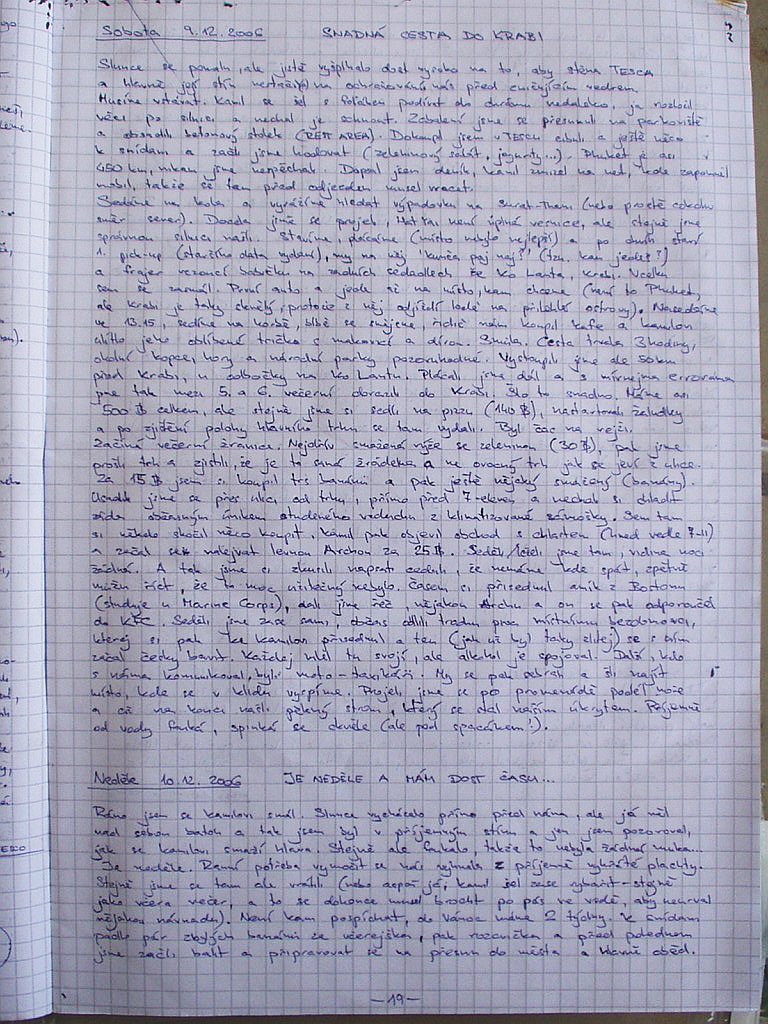 Sobota 9.12.2006 SNADNÁ CESTA DO KRABI
Slunce se pomalu, ale jistě vyšplhalo dost vysoko na to, aby stěna TESCA
a hlavně její stín nestačily na ochraňování nás před smažícím vedrem.
Musíme vstávat. Kamil se šel s foťákem podívat do chrámu nedaleko, já rozložil
věci po silnici a nechal je schnout. Zabaleni jsme se přesunuli na parkoviště
a obsadili betonový stolek (REST AREA). Dokoupil jsem v TESCU cibuli a ještě něco
k snídani a začli jsme hodovat (zeleninový salát, jogurty...). Phuket je asi
450 km, nikam jsme nespěchali. Dopsal jsem deník, Kamil zmizel na net, kde zapomněl
mobil, takže se tam před odjezdem musel vracet.
Sedáme na kola a vyrážíme hledat výpadovku na Surat Thani (nebo prostě cokoliv
směr sever). Docela jsme se projeli, Hat Yai není úplná vesnice, ale stejně jsme
správnou silnici našli. Stavíme, plácáme (místo nebylo nejlepší) a po chvíli staví
1. pick-up (staršího data vydání), my na něj "kunča paj naj?" (tzn. kam jedeš?)
a frajer vezoucí babičku na zadních sedadlech že Ko Lanta, Krabi. Vcelku
jsem se zarazil. První auto a jede až na místo, kam chceme (není to Phuket,
ale Krabi je taky skvělý, protože z něj odjíždí lodě na přilehlé ostrovy). Nasedáme
ve 13.15, sedíme na korbě, blbě se smějeme, řidič nám koupil kafe a Kamilovi
slítlo jeho oblíbené tričko s makovicí a dírou. Smůla. Cesta trvala 3 hodiny,
okolní kopce, hory a národní parky pozoruhodné. Vystoupili jsme ale 50 km
před Krabi, u odbočky na Ko Lantu. Plácali jsme dál a s mírnejma errorama
jsme tak mezi 5. a 6. večerní dorazili do Krabi. Šlo to snadno. Máme asi
500 ฿ celkem, ale stejně jsme si sedli na pizzu (140 ฿), nastartovali žaludky
a po zjištění polohy hlavního trhu se tam vydali. Byl čas na rejži.
Začíná večerní žranice. Nejdřív smažená rýže se zeleninou (30 ฿), pak jsme
prošli trh a zjistili, že je to samá žrádelka a ne ovocný trh jak se jeví z ulice.
Za 15 ฿ jsem si koupil trs banánů a pak ještě nějaký smažený (banány).
Usadili jsme se přes ulici od trhu, přímo před 7-eleven a nechali si chladit
záda občasným únikem studeného vzduchu z klimatizované sámošky. Sem tam
si někdo skočil něco koupit, Kamil pak objevil obchod s chlastem (hned vedle 7-11)
a začal se nalejvat levnou Archou za 25 ฿. Seděli/leželi jsme tam, vidina noci
žádná. A tak jsme si zkusili napsat ceduli, že nemáme kde spát, zpětně
můžu říct, že to moc užitečný nebylo. Časem si přisednul amík z Bostonu
(studuje u Marine Corps), dali jsme řeč, nějakou Archu a on se pak odporoučel
do KFC. Seděli jsme zase sami, občas dělili trochu prac místnímu bezdomovci,
kterej si pak ke Kamilovi přisednul a ten (jak už byl taky zlitej) se s ním
začal česky bavit. Každej mlel tu svojí, ale alkohol je spojoval. Další, kdo
s náma komunikoval, byli moto-taxikáři. My se pak sebrali a šli najít
místo, kde se v klidu vyspíme. Projeli jsme se po promenádě podél moře
a až na konci našli pěkný strom, který se stal naším úkrytem. Příjemně
od vody fouká, spinká se skvěle (ale pod spacákem!).
Neděle 10.12.2006 JE NEDĚLE A MÁM DOST ČASU...
Ráno jsem se Kamilovi smál. Slunce vycházelo přímo před náma, ale já měl
nad sebou batoh a tak jsem byl v příjemným stínu a jen jsem pozoroval,
jak se Kamilovi smaží hlava. Stejně ale foukalo, takže to nebyla žádná muka...
Je neděle. Ranní potřeba vymočit se nás vyhnala z příjemně vyhřáté plachty.
Stejně jsme se tam ale vrátili (nebo aspoň já, Kamil šel zase rybařit - stejně
jako včera večer, a to se dokonce musel brodit po pás ve vodě, aby neurval
nějakou návnadu). Není kam pospíchat, do Vánoc máme 2 týdny. K snídani
padlo pár zbylých banánů ze včerejška, pak rozcvička a před polednem
jsme začli balit a připravovat se na přesun do města a hlavně oběd.
- 19 -